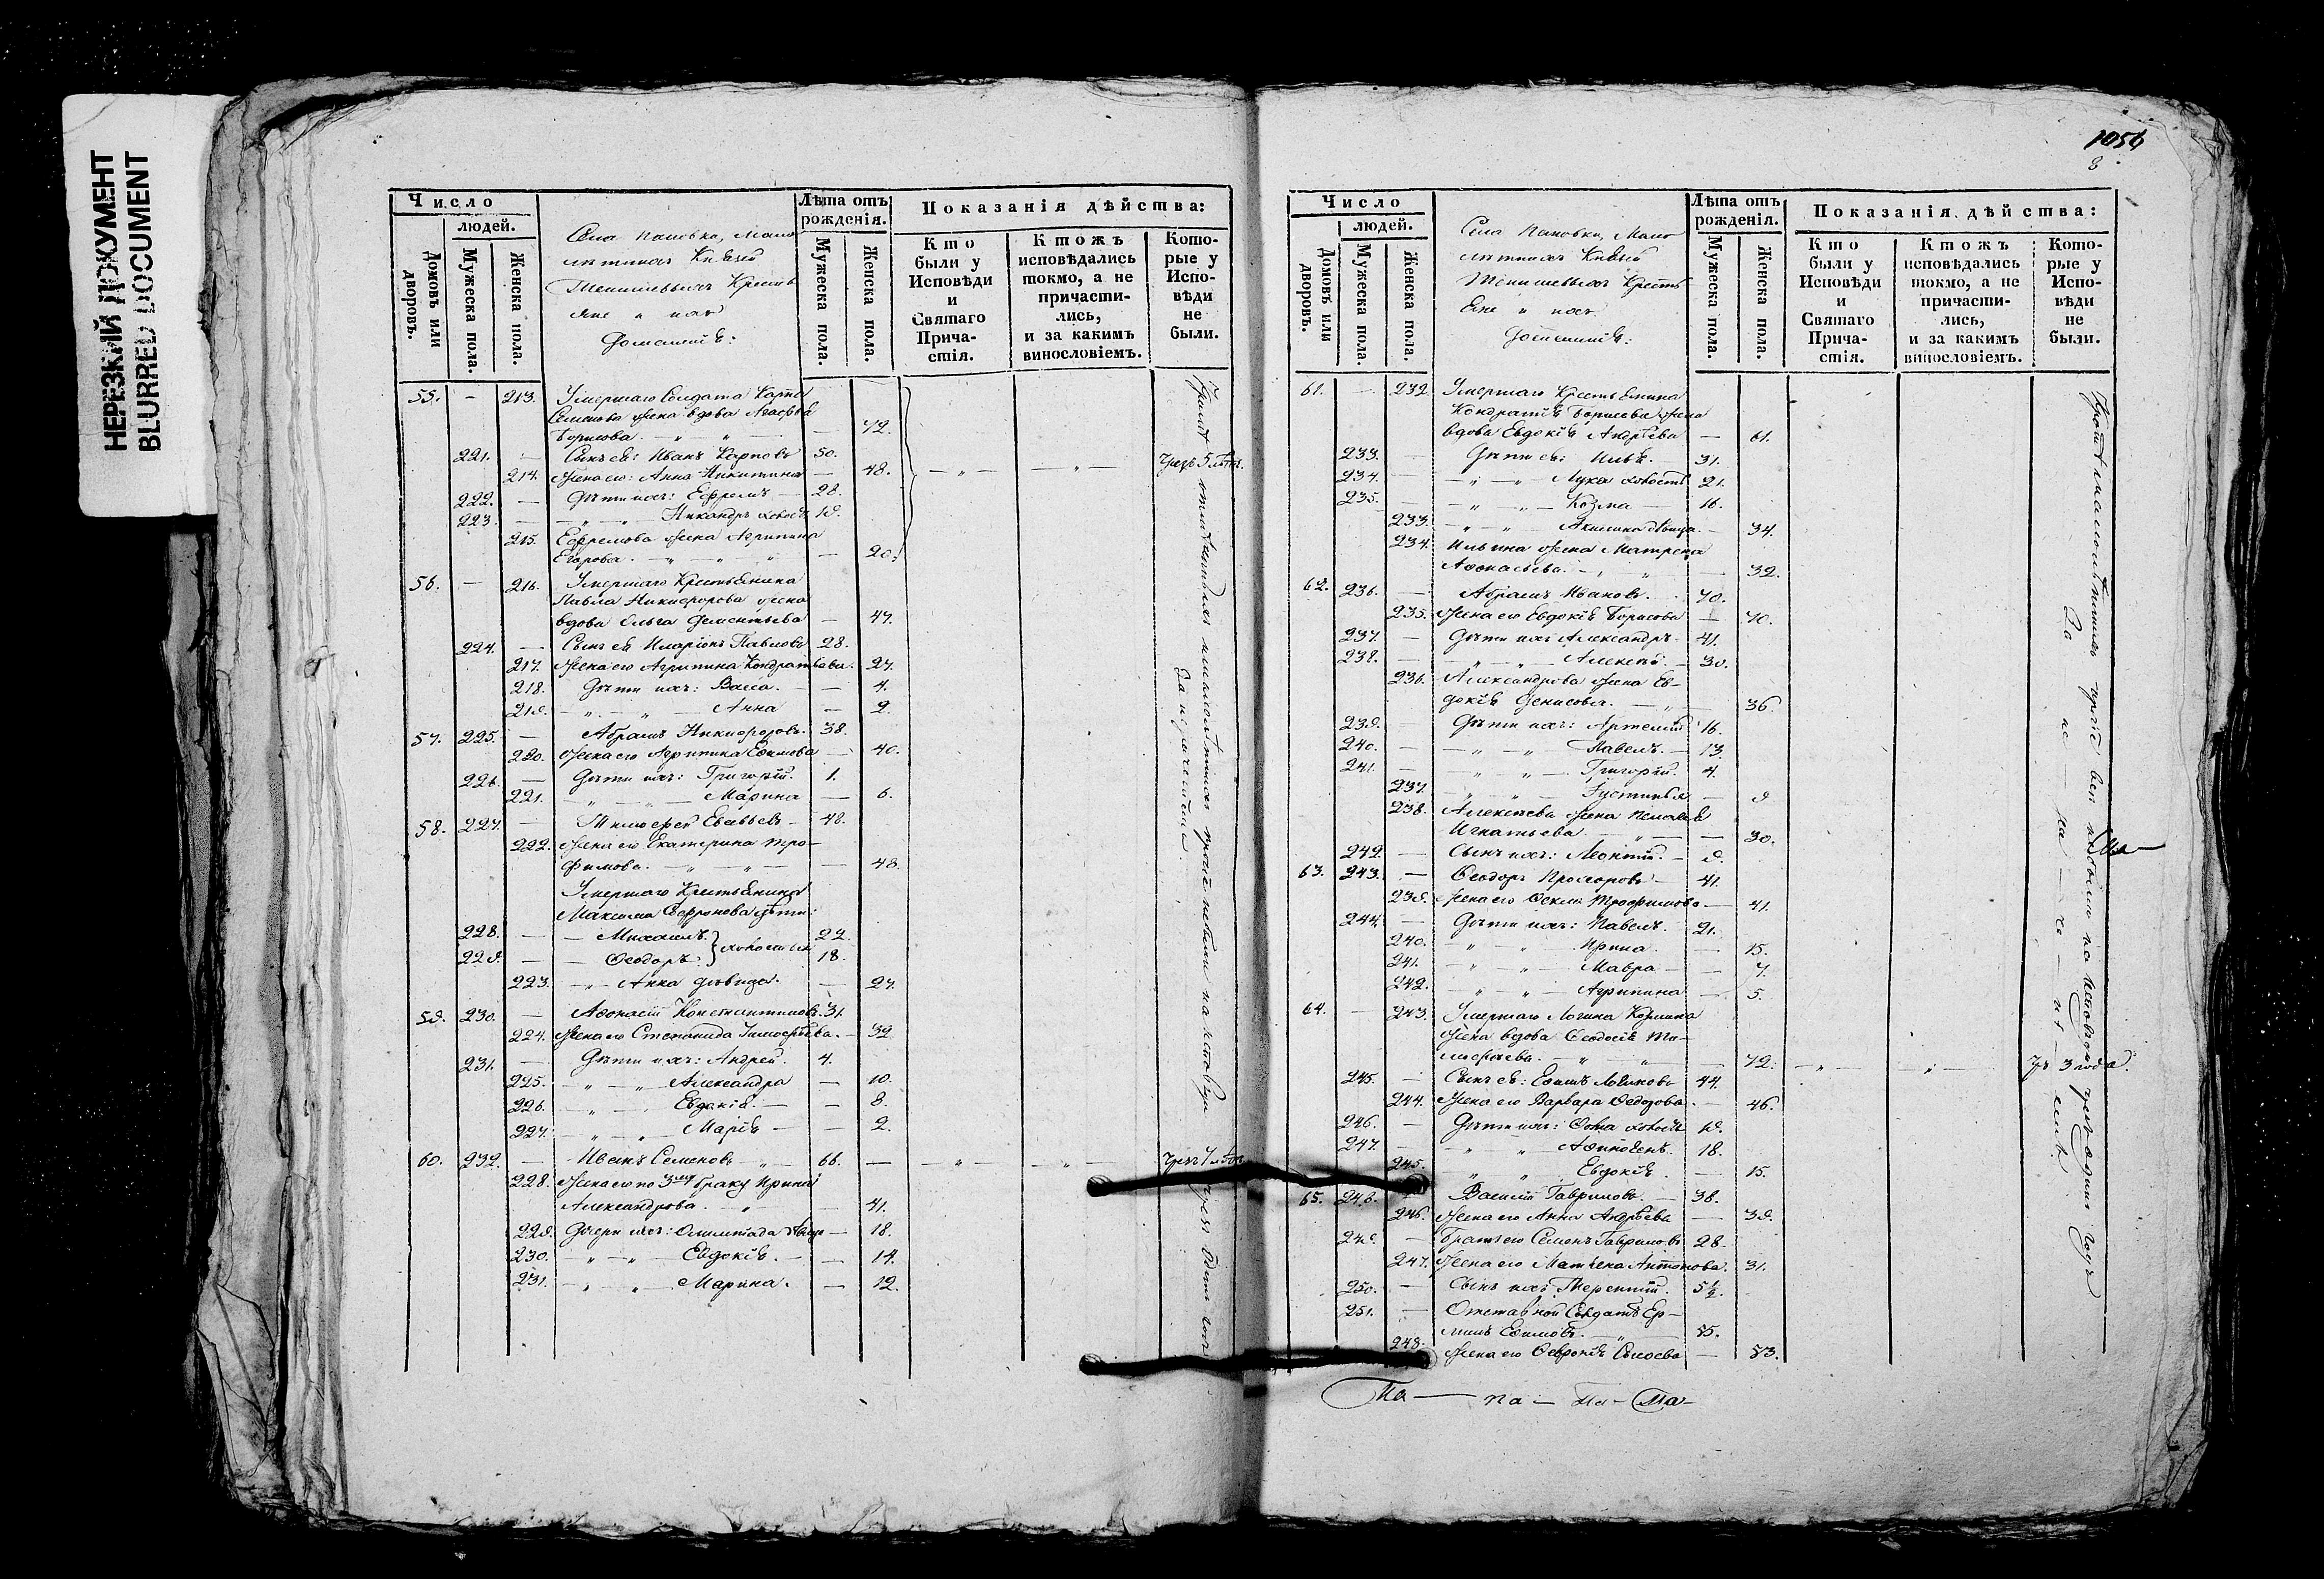 НЕРЕЗКИЙ ДОКУМЕНТ
BLURRED DOCUMENT
Число
людей.
Домовъ или дворовъ.
Мужеска пола.
Женска пола.
Села Пановки, Мало
лѣтныхъ Князей
Тенишевыхъ Кресть
яне и ихъ
Домашніе:
Лѣта отъ рожденія.
Мужеска пола.
Женска пола.
Показанія дѣйства:
Кто были у Исповѣди и Святаго Причастія.
Ктожъ исповѣдались токмо, а не причастились, и за какимъ винословіемъ.
Которые у Исповѣди не были.
55. — 213. Умершаго Солдата Карпа
Семенова жена вдова Агафья
Борисова. — „ — „ — — 72.
221. — Сынъ ея: Иванъ Карповъ 50.
214. Жена его: Анна Никитина — 48. — „ — — „ — Чрезъ 5 лѣтъ.
222. — Дѣти ихъ: Ефремъ — 28.
223. — — „ — „ — Никандръ холостъ 19.
215. Ефремова жена Агрипина
Егорова. — „ — „ — 20.
56. — 216. Умершаго Крестьянина
Павла Никифорова жена
вдова Ольга Дементьева — 47.
224. — Сынъ ея Иларіонъ Павловъ 28.
217. Жена его Агрипина Кондратьева. 27.
218. Дѣти ихъ: Васса. — — 4.
219. — „ — „ — Анна — 2.
57. 225. — Абрамъ Никифоровъ. 38.
220. Жена его Агрипина Ефимова — 40.
226. — Дѣти ихъ: Григорій. 1.
221. — „ — „ — Марина — 6.
58. 227. — Тимофей Евсевьевъ — 48.
222. Жена его Екатерина Тро-
фимова. — „ — „ — — 48.
Умершаго Крестьянина
Максима Софронова дѣти:
228. — — Михаилъ. } холостые 22.
229. — — Ѳеодоръ. 18.
223. — „ — Анна дѣвица. — 27.
59. 230. — Аѳонасій Константиновъ. 31.
224. Жена его Степанида Тимофѣева. — 32.
231. — Дѣти ихъ: Андрей. 4.
225. — „ — „ — Александра — 10.
226. — „ — Евдокія. — — 8.
227. — „ — „ — Марія — — 2.
60. 232. — Иванъ Семеновъ — „ — 66. — — „ — — „ — Чрезъ 7 лѣтъ
228. Жена его по 3му браку Ирина
Александрова. — „ — — 41.
229. Дочери ихъ: Олимпіада дѣвица — 18.
230. — „ — „ — Евдокія. — — 14.
231. — „ — „ — Марина. — — 12.
1056
8
Число
людей.
Домовъ или дворовъ.
Мужеска пола.
Женска пола.
Села Пановки, Мало
лѣтныхъ Князей
Тенишевыхъ Кресть
яне и ихъ
Домашніе:
Лѣта отъ рожденія.
Мужеска пола.
Женска пола.
Показанія дѣйства:
Кто были у Исповѣди и Святаго Причастія.
Ктожъ исповѣдались токмо, а не причастились, и за какимъ винословіемъ.
Которые у Исповѣди не были.
61. — 232. Умершаго Крестьянина
Кондратія Борисова жена
вдова Евдокія Андрѣева — 61.
233. — Дѣти ея: Илья. — 31.
234. — — „ — „ — Лука холостъ 21.
235. — — „ — „ — Козма — 16.
233. — „ — „ — Акилина дѣвица. — 34.
234. Ильина жена Матрена
Аѳонасьева. — „ — „ — 32.
62. 236. — Абрамъ Ивановъ. — 70.
235. Жена его Евдокія Борисова — 70.
237. — Дѣти ихъ Александръ. 41.
238. — — „ — „ — Алексѣй. — 30.
236. Александрова жена Ев-
докія Денисова. — „ — 36.
239. — Дѣти ихъ: Артемій 16.
240. — — „ — „ — Павелъ. — 13.
241. — — „ — „ — Григорій. 4.
237. — „ — „ — Іустинья — 9
238. Алексѣева жена Пелагея
Игнатьева. — „ — — 30.
242. — Сынъ ихъ: Леонтій. — 9.
63. 243. — Ѳеодоръ Прохоровъ — 41.
239. Жена его Ѳекла Трофимова — 41.
244. — Дѣти ихъ: Павелъ. 21.
240. — „ — „ — Ирина. — 15.
241. — „ — „ — Мавра — — 7.
242. — „ — „ — Агрипина — 5.
64. — 243. Умершаго Логина Кормина
жена вдова Ѳеодосія Ти-
мофѣева. — „ — „ — — 72. — „ — „ — Чр. 3 года.
245. — Сынъ ея: Ефимъ Логиновъ 44.
244. Жена его Варвара Ѳедорова. — 46.
246. — Дѣти ихъ: Ѳома холостъ 19.
247. — „ — „ — Аѳиногенъ. 18.
245. — „ — „ — Евдокія. — 15.
65. 248. — Василій Гавриловъ. — 38.
246. Жена его Анна Андрѣева — 39.
249. — Братъ его Семенъ Гавриловъ 28.
247. Жена его Матрена Антонова. 31.
250. — Сынъ ихъ Терентій. 5½.
251. — Отставной Солдатъ Ер-
милъ Ефимовъ. — „ — 55.
248. Жена его Ѳевронія Сысоева — 53.